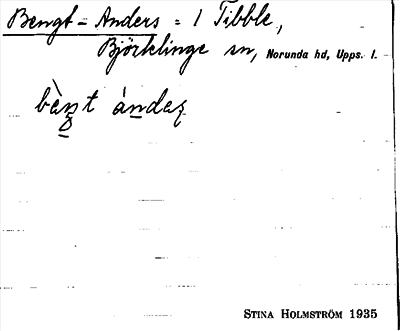 Bengt-Anders = 1 Tibble,
Björklinge sn, Norunda hd, Upps. l.
bèn̠t ándaʂ
STINA HOLMSTRÖM 1935